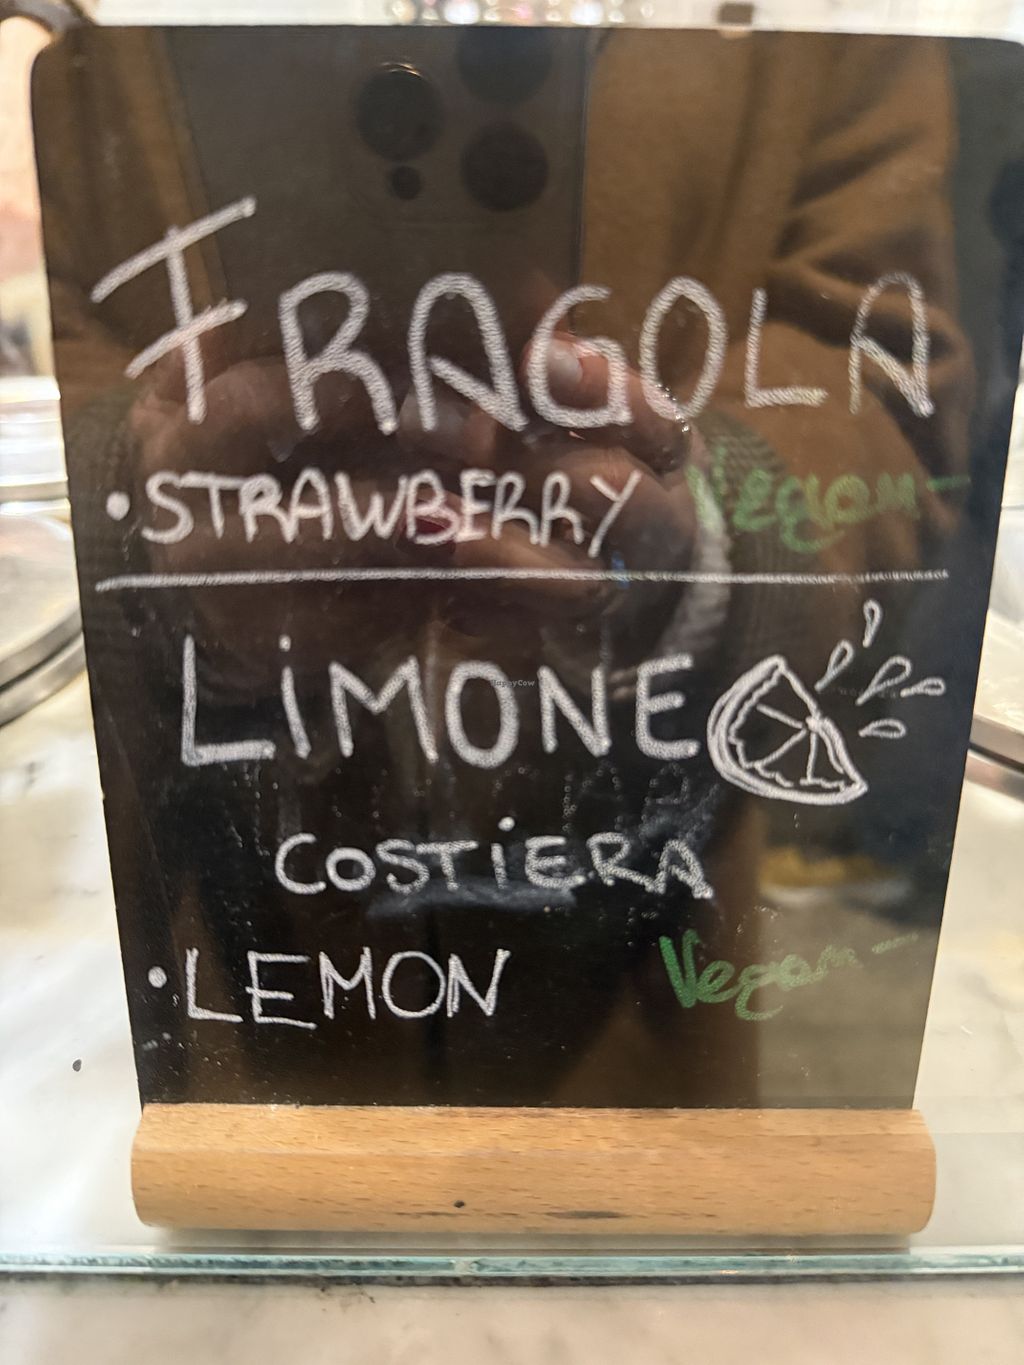 FRAGOLA
• STRAWBERRY Vegan –
LiMONE
HappyCow
COSTiERA
• LEMON Vegan –